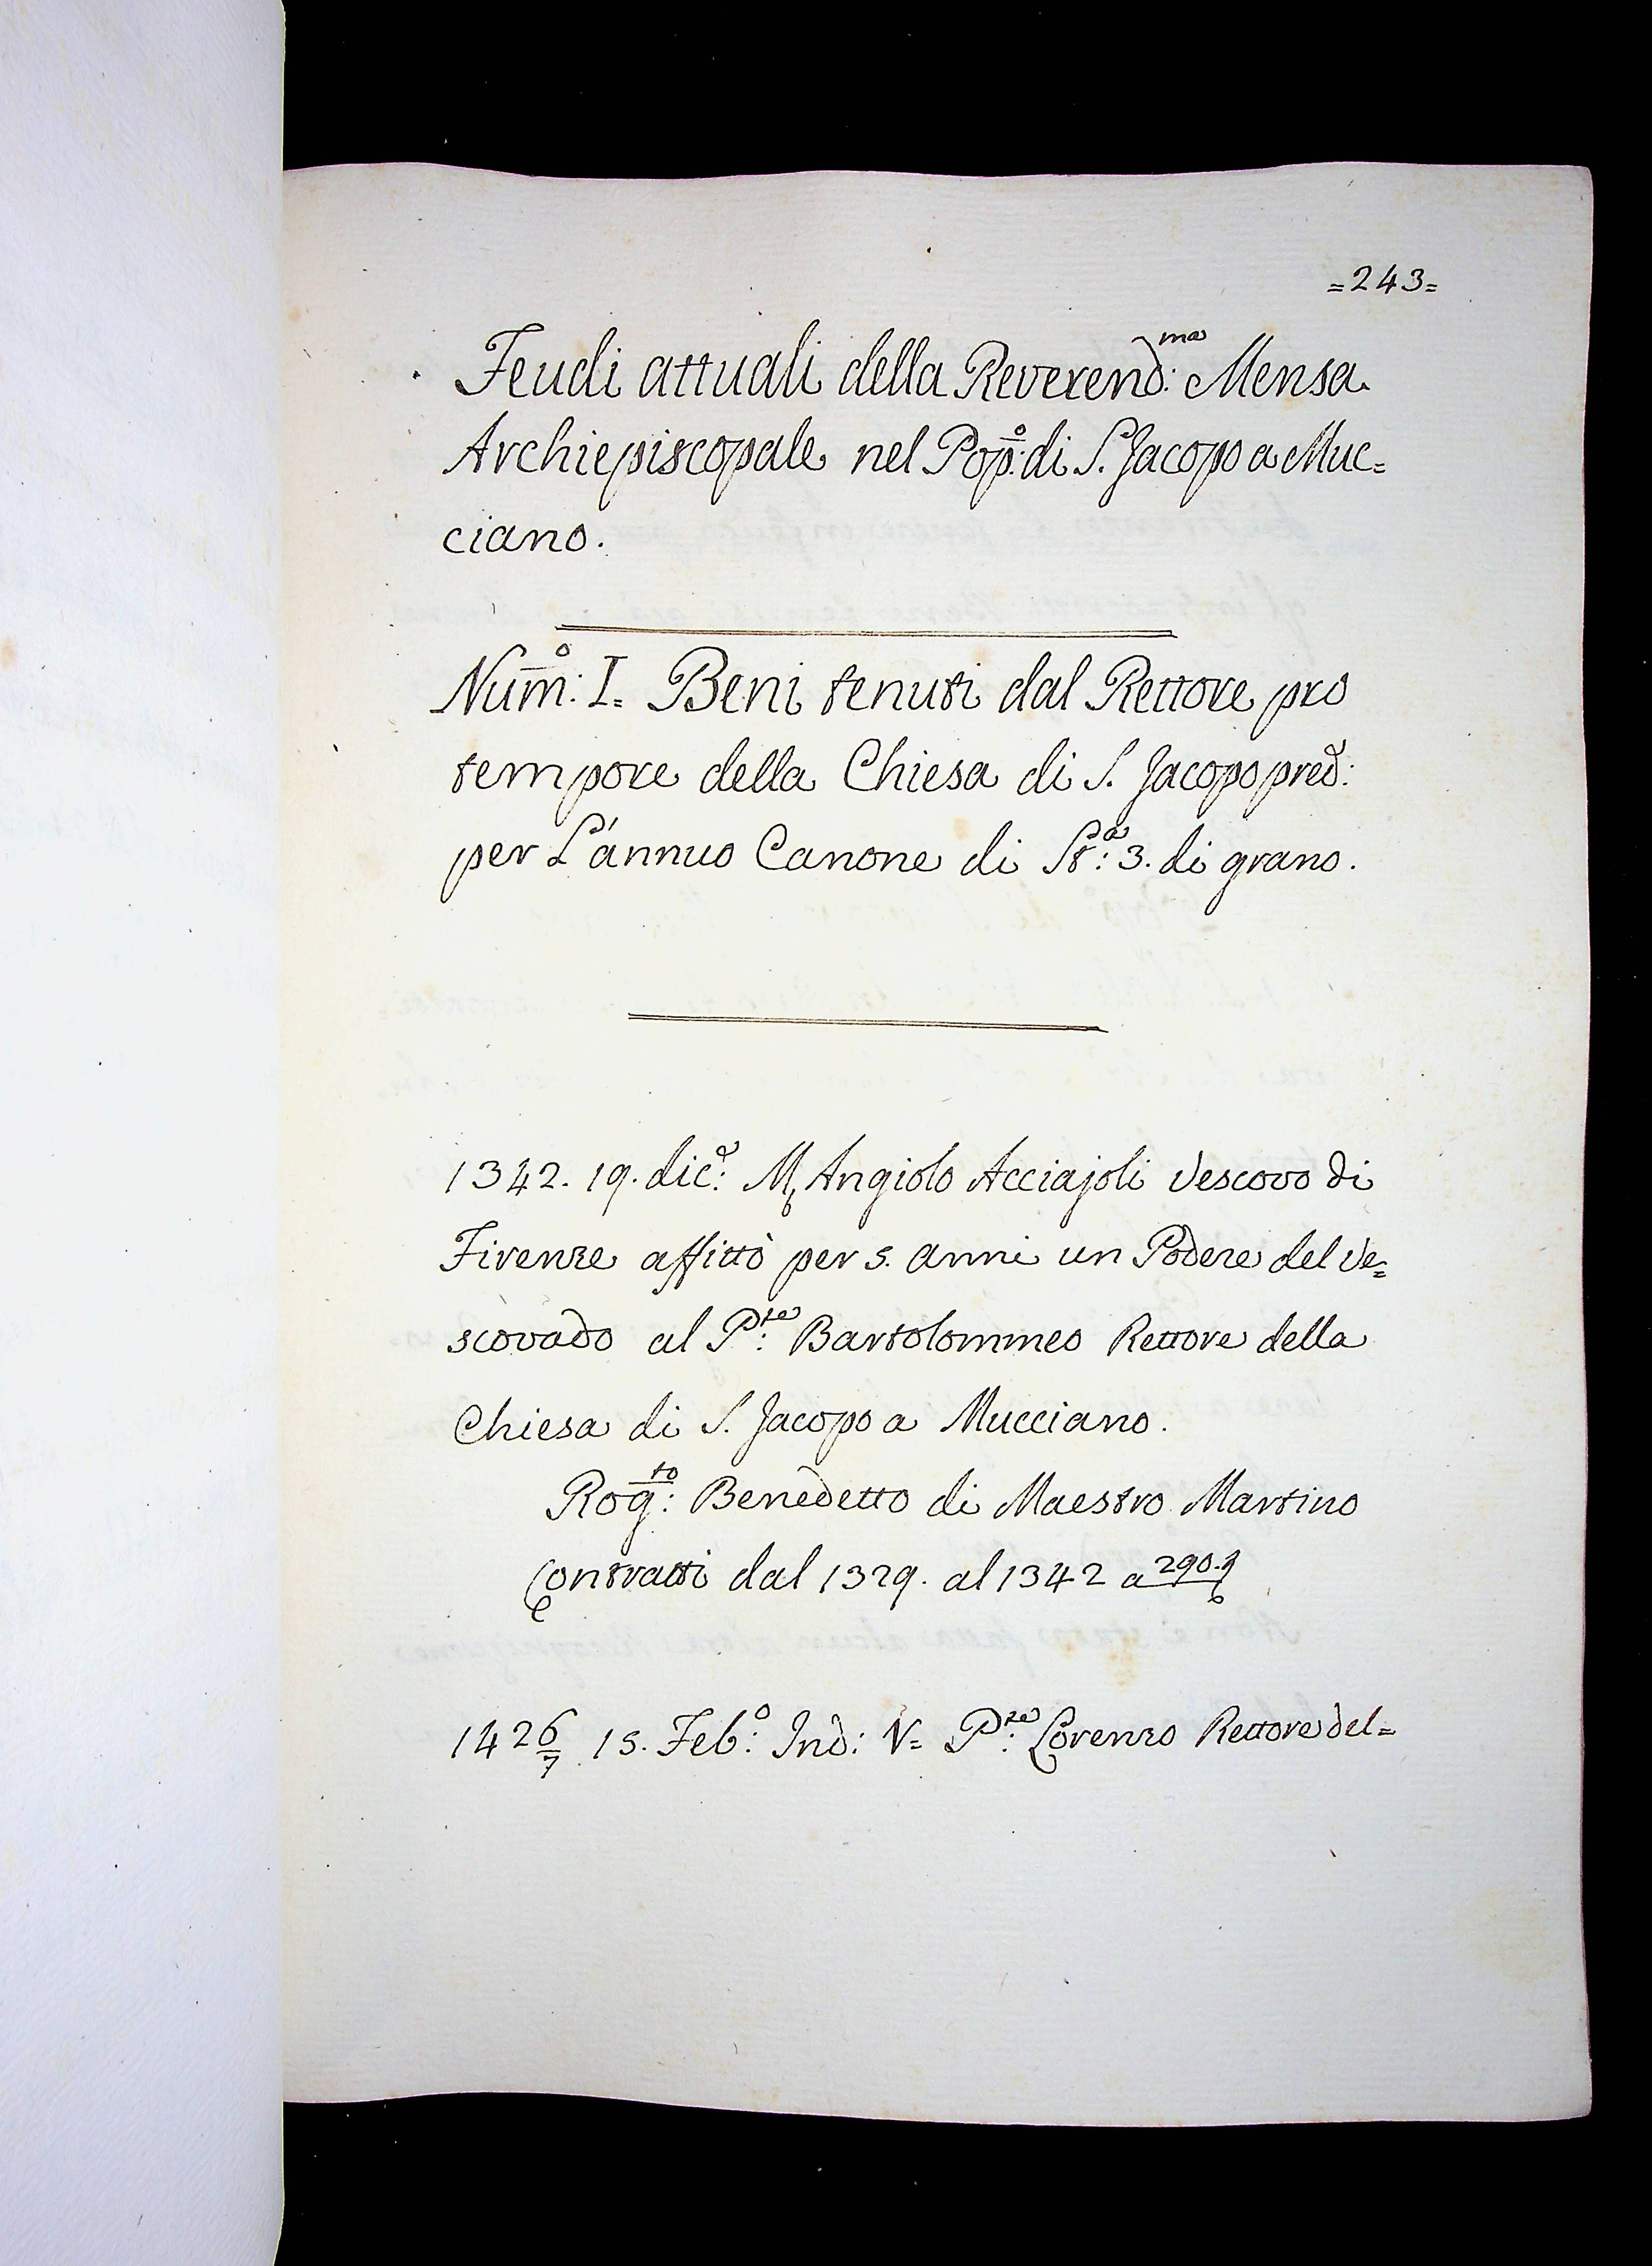 =243=
Feudi attuali della Reverend:ma Mensa
Archiepiscopale nel Pop:o di S. Jacopo a Muc=
ciano.
Num:o I= Beni tenuti dal Rettore pro
tempore della Chiesa di S. Jacopo pred:
per L'annuo Canone di St:a 3. di grano.
1342. 19. dic:e M, Angiolo Acciajoli Vescovo di
Firenze affittò per 5. anni un Podere del Ve=
scovado al P:te Bartolommeo Rettore della
Chiesa di S. Jacopo a Mucciano.
Rog:to Benedetto di Maestro Martino
Contratti dal 1329. al 1342 a 290.
1426/7 15. Feb:o Ind: V= P:te Lorenzo Rettore del=